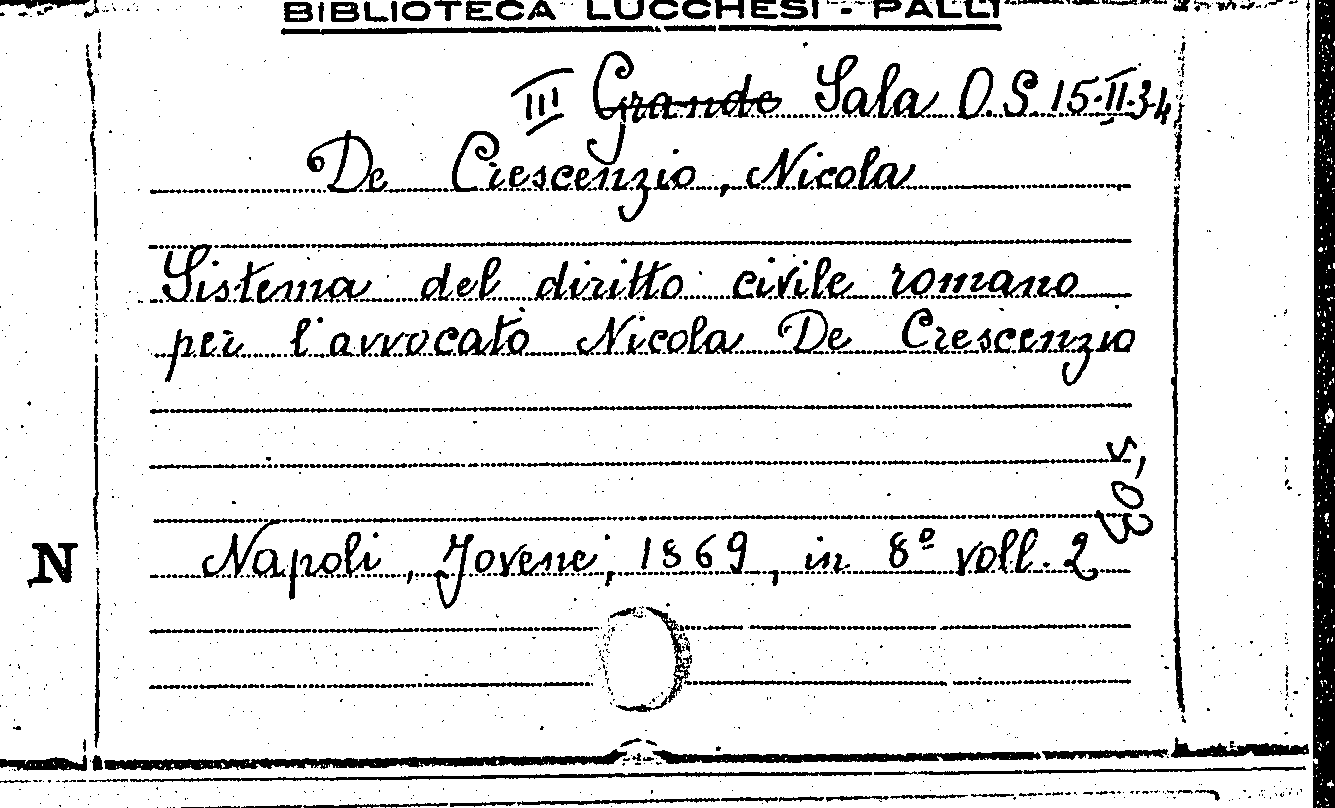 BIBLIOTECA LUCCHESI - PALLI
III Grande Sala O.S. 15.II.34
De Crescenzio, Nicola
Sistema del diritto civile romano
per l'avvocato Nicola De Crescenzio
Napoli, Jovene, 1869, in 8º voll. 2
N